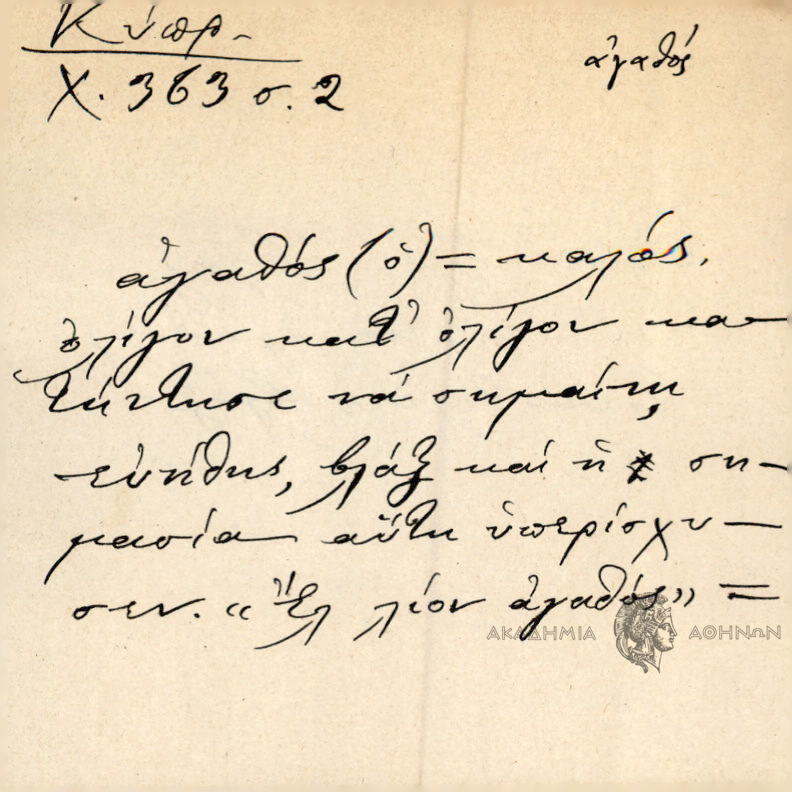 Κύπρ.
Χ. 363 σ. 2
ἀγαθός
ἀγαθός (ὁ) = καλός.
ὀλίγον κατ' ὀλίγον κα-
τήντησε νά σημαίνῃ
εὐήθης, βλάξ καί ἡ ση-
μασία αὕτη ὑπερίσχυ-
σεν. «Ἔλ λίον ἀγαθός» =
ΑΚΑΔΗΜΙΑ ΑΘΗΝΩΝ